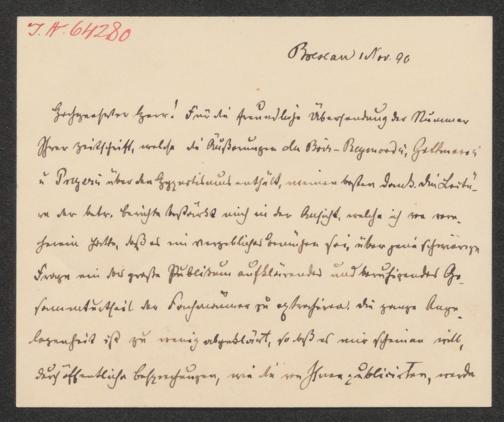 I. N. 64280
Breslau 1 Nov. 90
Hochgeehrter Herr! Für die freundliche Übersendung der Nummer
Ihrer Zeitschrift, welche die Äußerungen du Bois-Reymond's,
u Preyers über den Hypnotismus enthält, meinen besten Dank. Die Lectü-
re der betr. Berichte bestärkt mich in der Ansicht, welche ich von vorn-
herein hatte, daß es ein vergebliches Bemühen sei, über jene schwierige
Frage ein das große Publikum aufklärendes und beruhigendes Ge-
sammturtheil der Fachmänner zu extrahiren. Die ganze Ange-
legenheit ist zu wenig abgeklärt, so daß es mir scheinen will,
durch öffentliche Besprechungen, wie die von Ihnen publicirten, werde